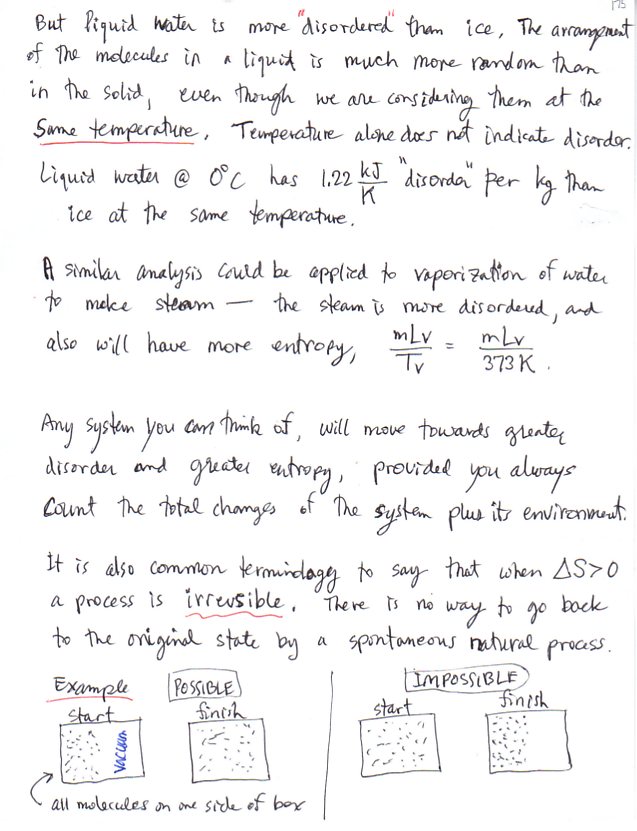 175
But liquid water is more "disordered" than ice. The arrangement
of the molecules in a liquid is much more random than
in the solid, even though we are considering them at the
same temperature. Temperature alone does not indicate disorder.
Liquid water @ 0°C has 1.22 kJ/K "disorder" per kg than
ice at the same temperature.
A similar analysis could be applied to vaporization of water
to make steam — the steam is more disordered, and
also will have more entropy, mLv/Tv = mLv/373K.
Any system you can think of, will move towards greater
disorder and greater entropy, provided you always
count the total changes of the system plus its environment.
It is also common terminology to say that when ΔS>0
a process is irreversible. There is no way to go back
to the original state by a spontaneous natural process.
Example POSSIBLE
start finish
vacuum
all molecules on one side of box
IMPOSSIBLE
start finish